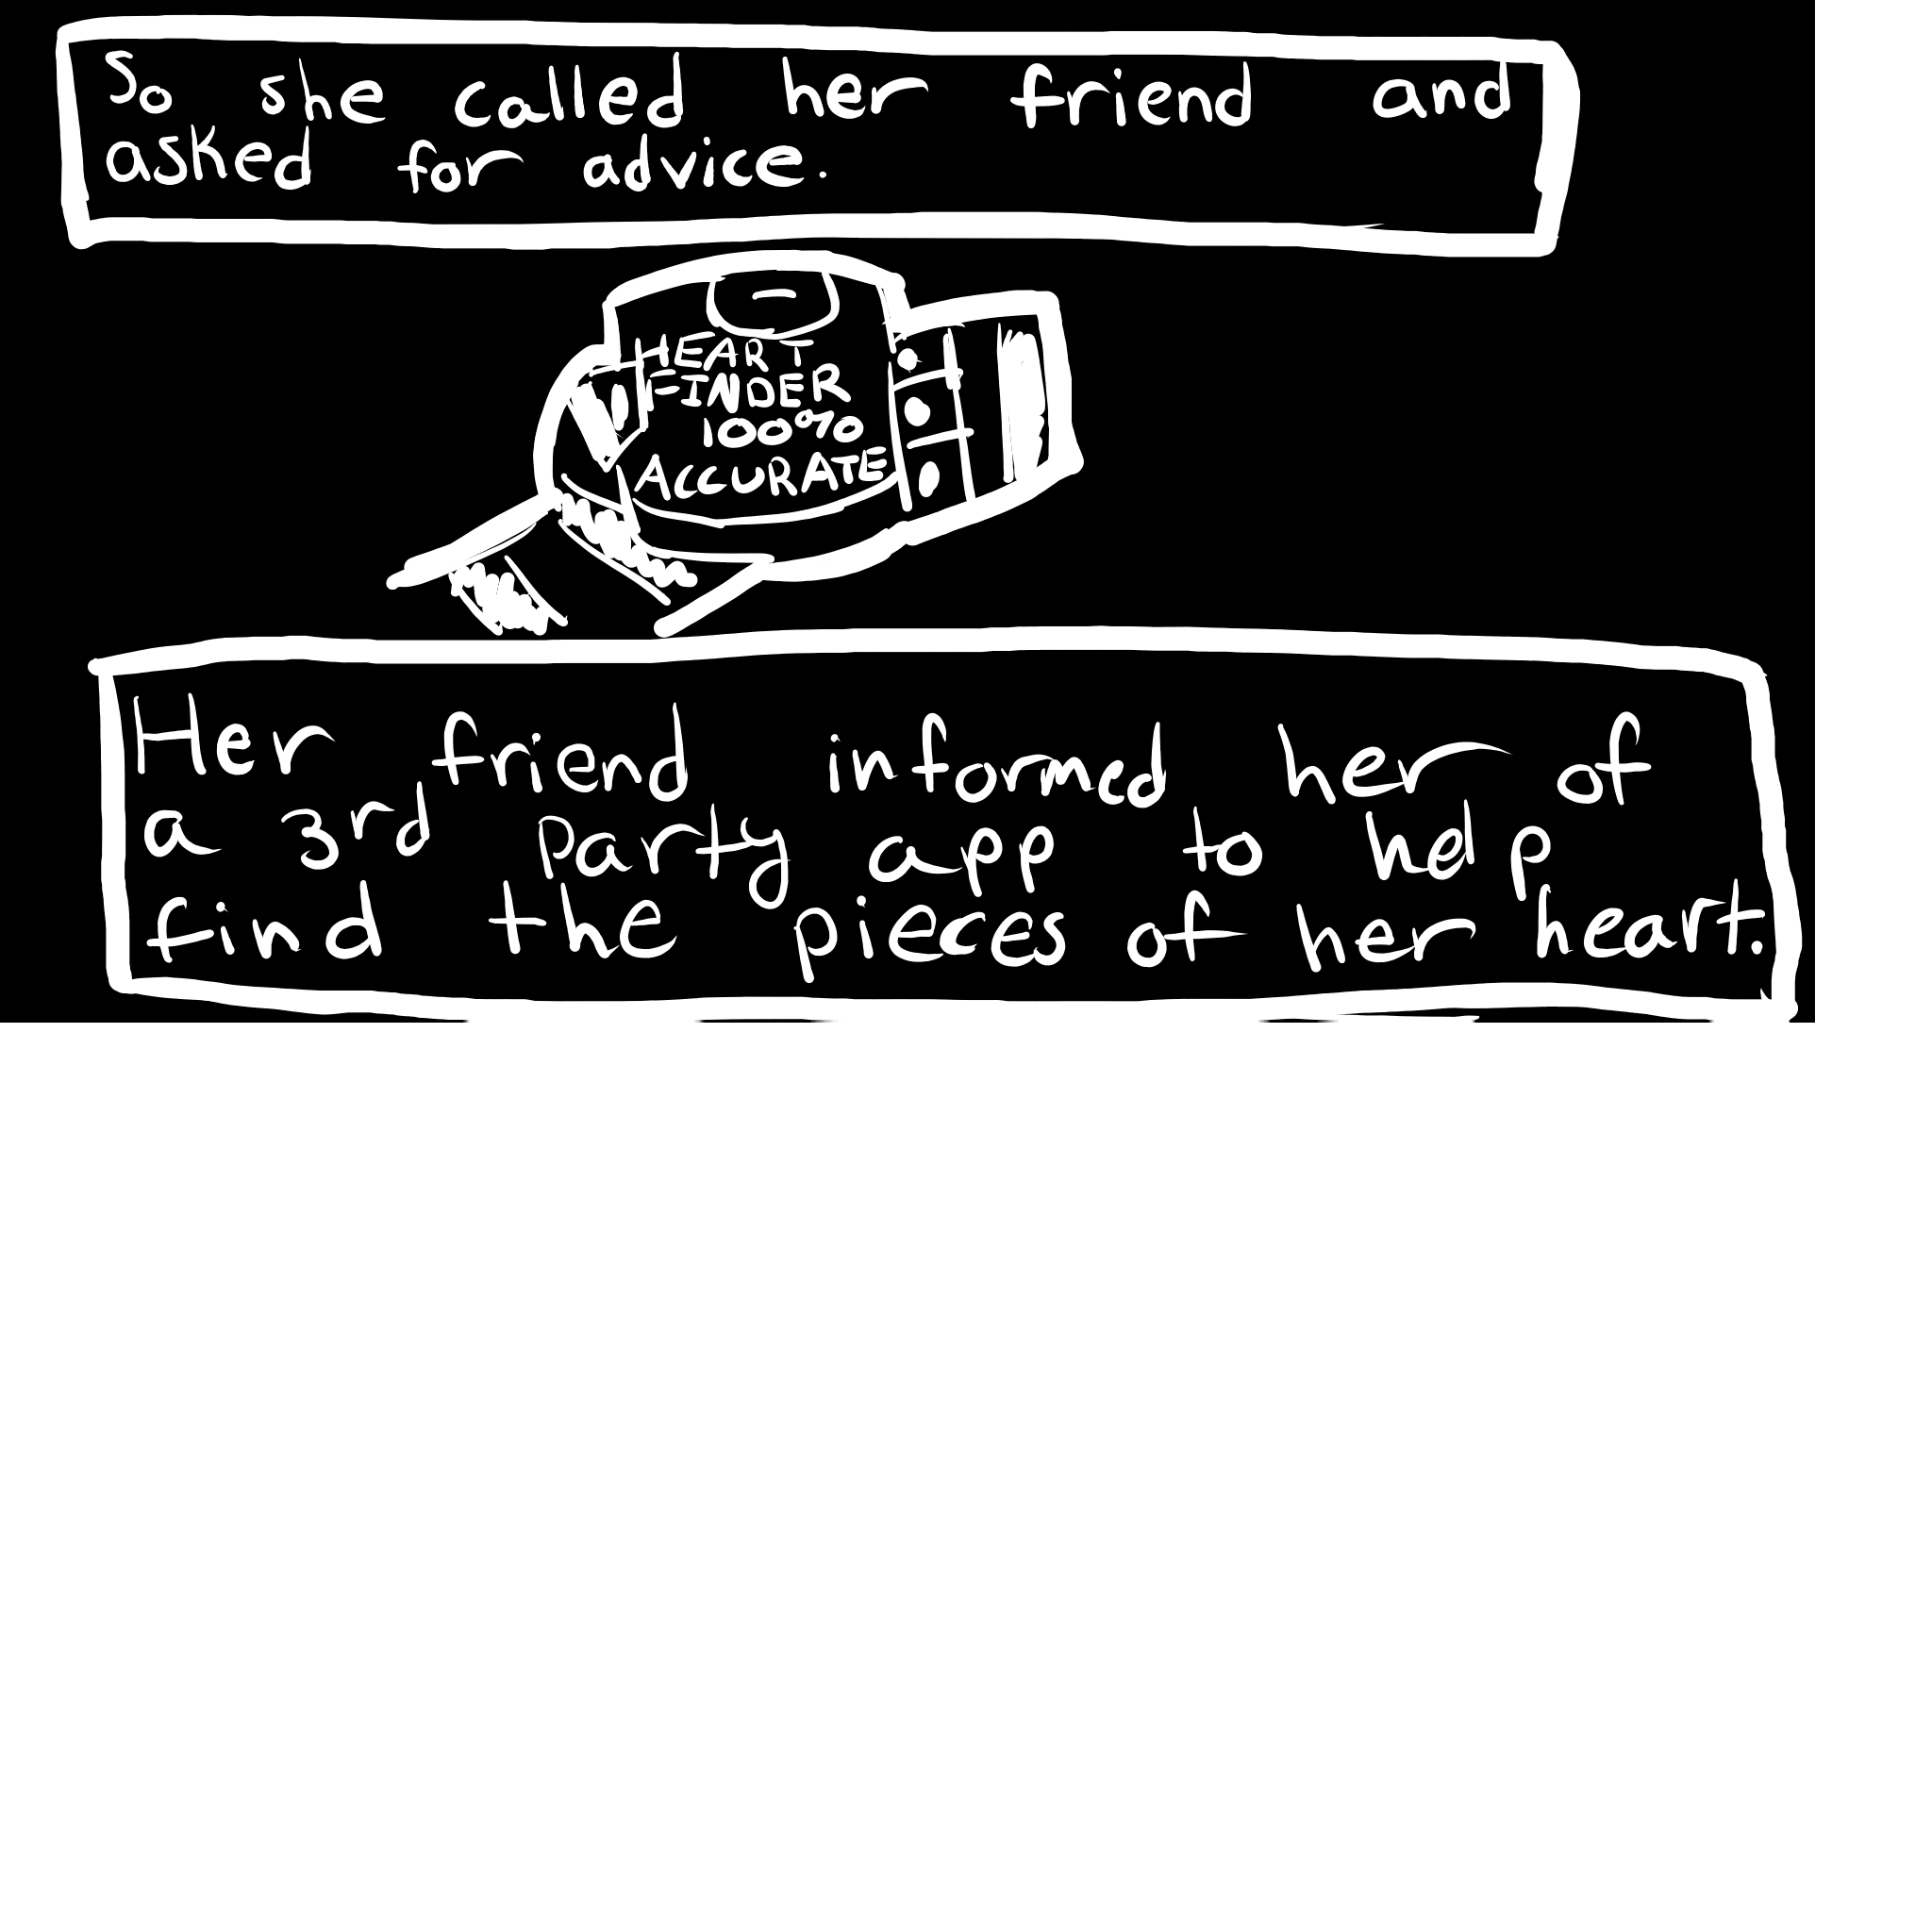 So she called her friend and
asked for advice.
HEART
FINDER
100%
ACCURATE
Her friend informd her of
a 3rd Party app to help
find the pieces of her heart.